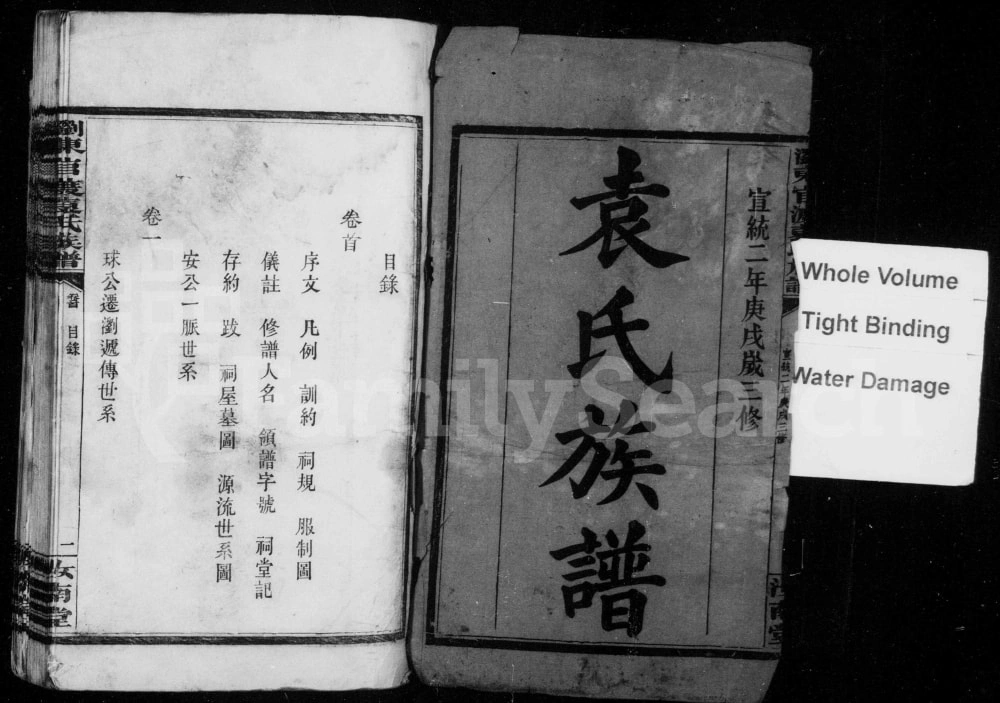 宣統二年庚戌歲三修
袁氏族譜
Whole Volume
Tight Binding
Water Damage
目錄
卷首
序文 凡例 訓約 祠規 服制圖
儀註 修譜人名 領譜字號 祠堂記
存約 跋 祠屋墓圖 源流世系圖
安公一脈世系
卷一
球公遷瀏遞傳世系
瀏東官渡袁氏族譜
目錄
二 汝南堂
FamilySearch